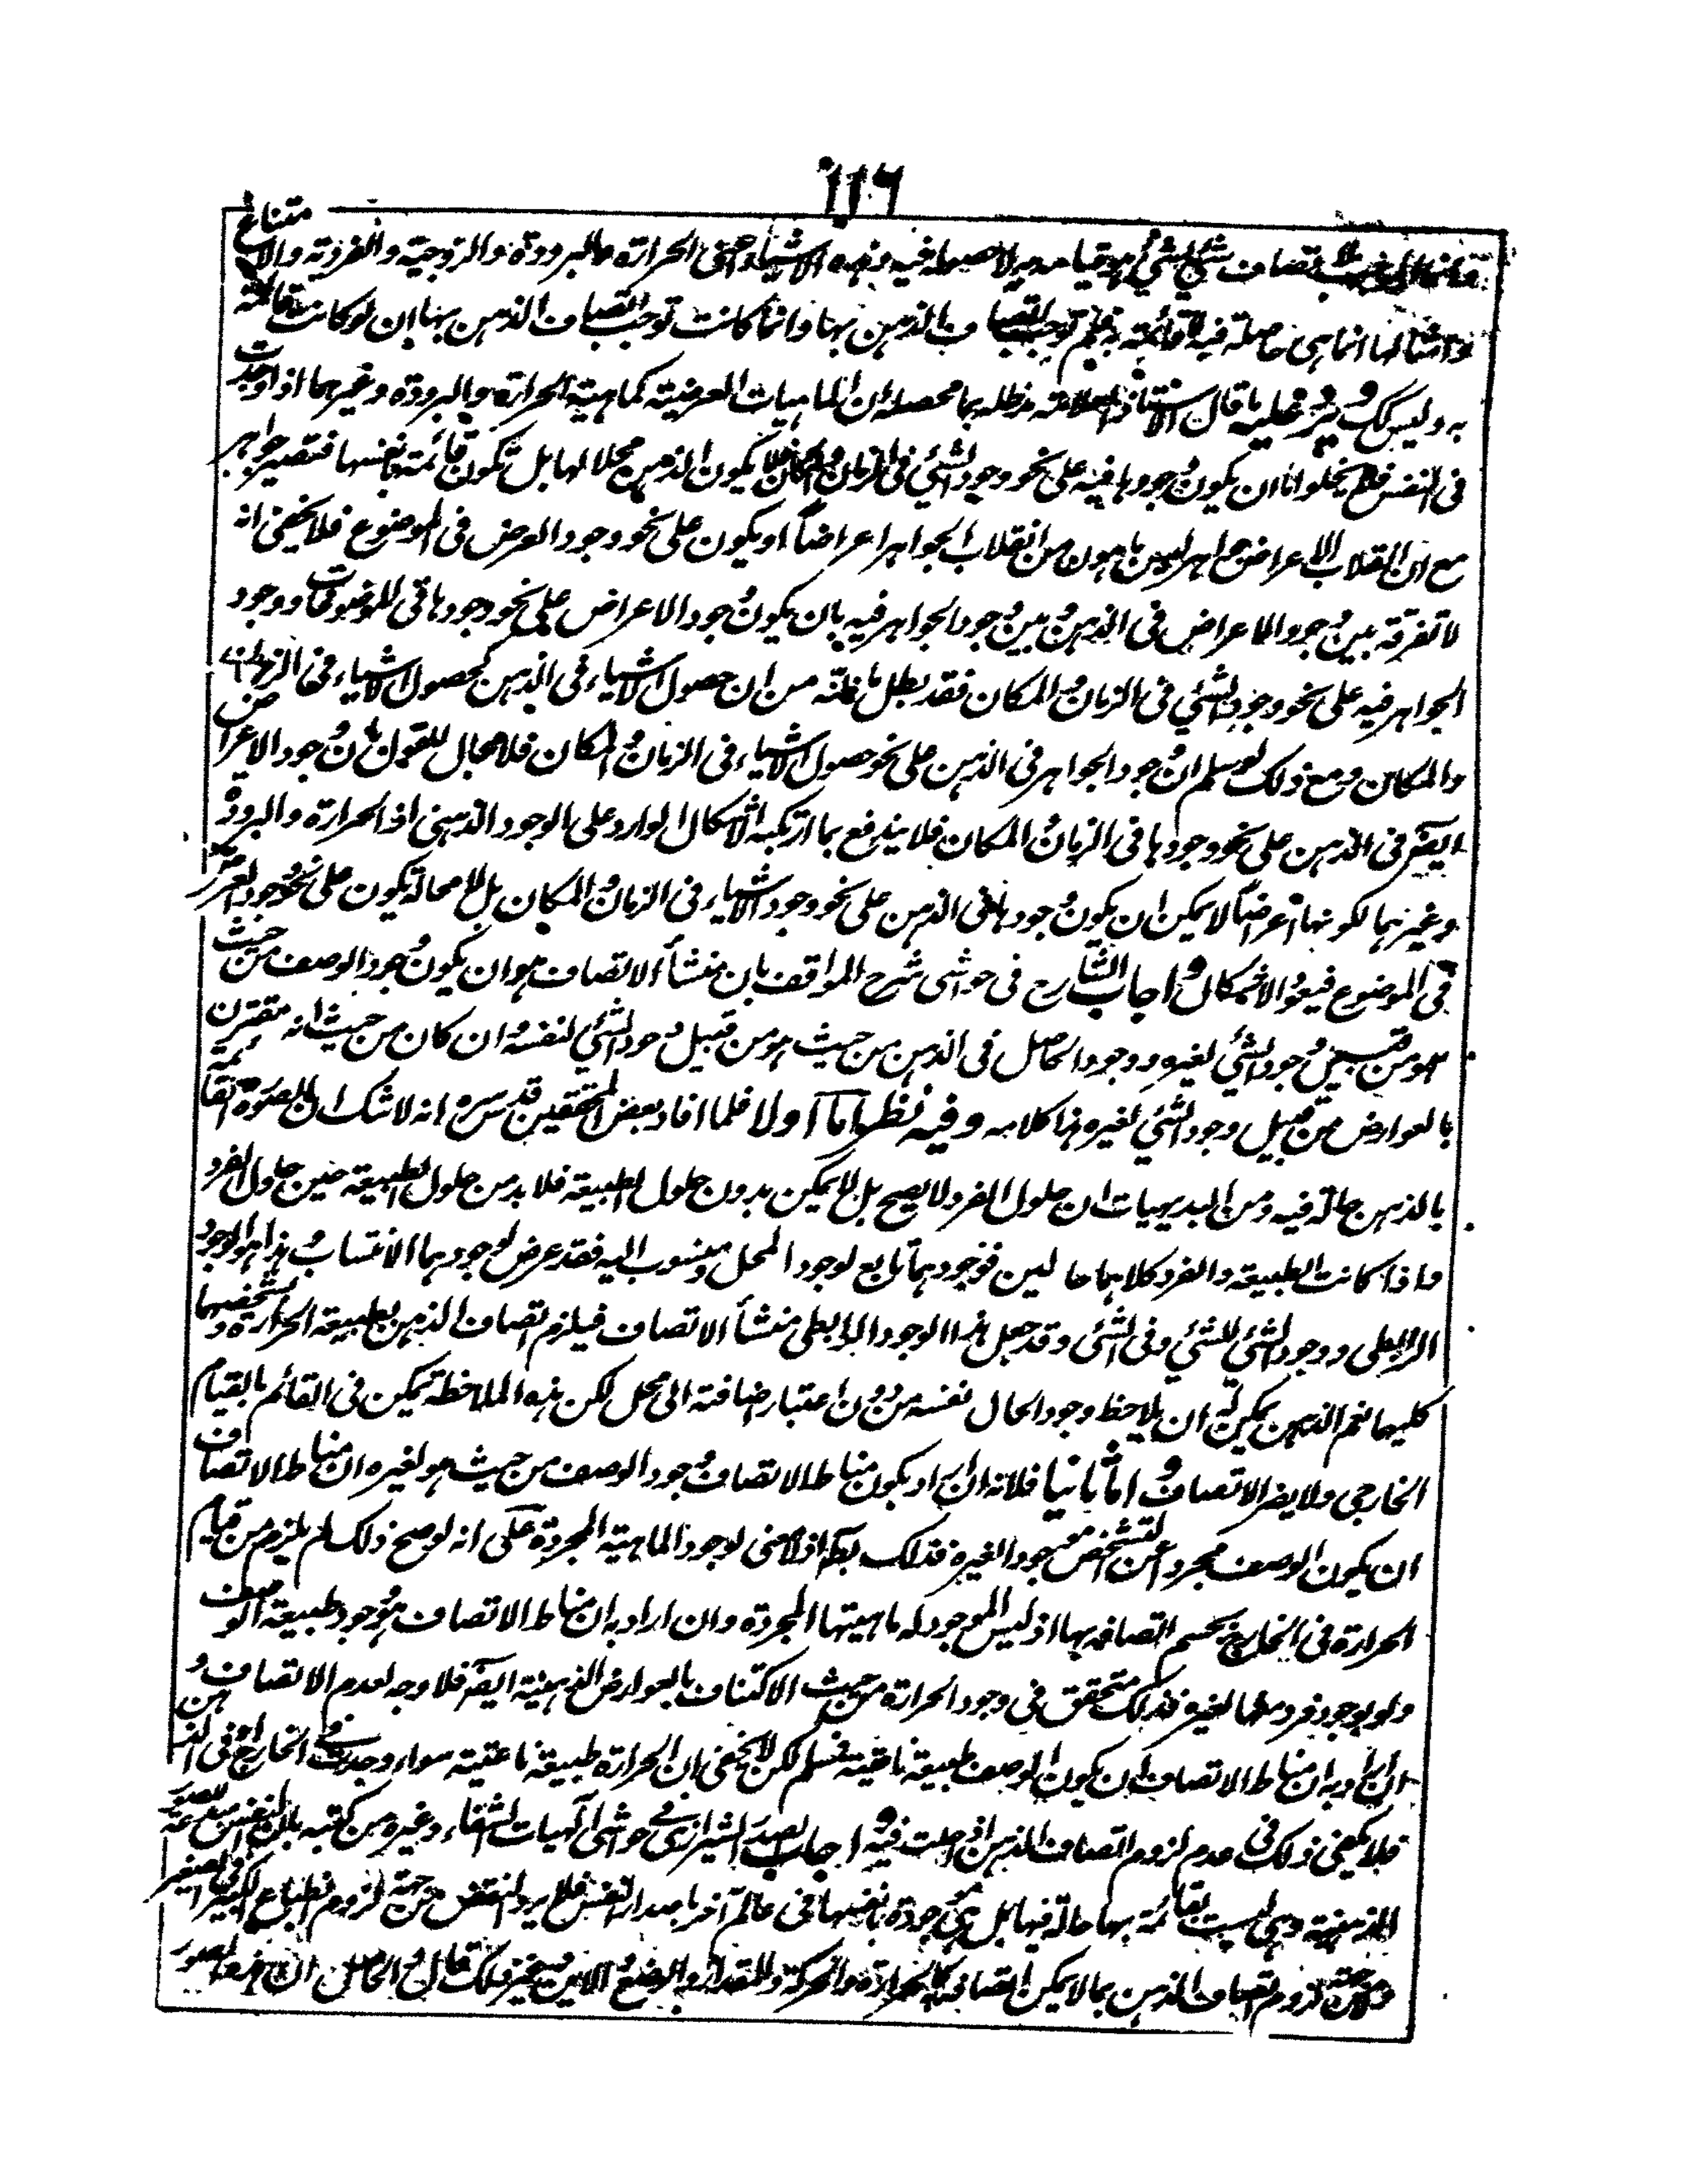 ١١٦
لاتصاف شئ لشئ هو قيامه به لا حصوله فيه وهذه الاشياء اعنى الحرارة والبرودة والزوجية والفردية والامتناع
وامثالها انما هى حاصلة فيه لا قائمة به فلم توجب اتصاف الذهن بها وانما كانت توجب اتصاف الذهن بها ان لو كانت قائمة
به وليس كك و يرد عليه ما قال الاستاذ العلامة مد ظله بما محصله ان الماهيات العرضية كماهية الحرارة والبرودة وغيرهما اذا وجدت
فى النفس فلم يخلوا اما ان يكون وجودها فيه على نحو وجود الشئ فى الزمان والمكان فلا يكون الذهن محلا لها بل تكون قائمة بانفسها فتصير جواهر
مع ان انقلاب الاعراض جواهر ليس باهون من انقلاب الجواهر اعراضاً او يكون على نحو وجود العرض فى الموضوع فلا يخفى انه
لا تفرقة بين وجود الاعراض فى الذهن وبين وجود الجواهر فيه بان يكون وجود الاعراض على نحو وجودها فى الموضوعات ووجود
الجواهر فيه على نحو وجود الشئ فى الزمان والمكان فقد بطل ما ظنه من ان حصول الاشياء فى الذهن كحصول الاشياء فى الزمان
والمكان ومع ذلك لو سلم ان وجود الجواهر فى الذهن على نحو حصول الاشياء فى الزمان والمكان فلا مجال للقول بان وجود الاعراض
ايضً فى الذهن على نحو وجودها فى الزمان والمكان فلا يندفع بما ارتكبه الاشكال الوارد على الوجود الذهنى اذ الحرارة والبرودة
وغيرهما لكونها اعراضاً لا يمكن ان يكون وجودها فى الذهن على نحو وجود الاشياء فى الزمان والمكان بل لا محالة يكون على نحو وجود العرض
فى الموضوع فيعود الاشكال و اجاب الشارح فى حواشى شرح المواقف بان منشأ الاتصاف هو ان يكون وجود الوصف من حيث
هو من قبيل وجود الشئ لغيره ووجود الحاصل فى الذهن من حيث هو من قبيل وجود الشئ لنفسه وان كان من حيث انه مقترن
بالعوارض من قبيل وجود الشئ لغيره هذا كلامه وفيه نظر اما اولا فلما افاد بعض المحققين قدس سره انه لا شك ان الصورة القائمة
بالذهن حالة فيه ومن البديهيات ان حلول الفرد لا يصح بل لا يمكن بدون حلول الطبيعة فلا بد من حلول الطبيعة حين حلول الفرد
واذا كانت الطبيعة والفرد كلاهما حالين فوجودهما تابع لوجود المحل ومنسوب اليه فقد عرض لوجودهما الانتساب وهذا هو الوجود
الرابطى ووجود الشئ للشئ وفى الشئ وقد جعل هذا الوجود الرابطى منشأ الاتصاف فيلزم اتصاف الذهن بطبيعة الحرارة وشخصها
كليهما نعم الذهن يمكن له ان يلاحظ وجود الحال نفسه من دون اعتبار اضافته الى محل لكن هذه الملاحظة تمكن فى القائم بالقيام
الخارجى ولا يضر الاتصاف و اما ثانيا فلانه ان اراد بكون مناط الاتصاف وجود الوصف من حيث هو لغيره ان مناط الاتصاف
ان يكون الوصف مجردا عن التشخص موجودا لغيره فذلك بط اذ لا معنى لوجود الماهية المجردة على انه لو صح ذلك لم يلزم من قيام
الحرارة فى الخارج بجسم اتصافه بها اذ ليس الموجود له ماهيتها المجردة وان اراد به ان مناط الاتصاف هو وجود طبيعة الوصف
ولو بوجود فرد منها لغيره فذلك متحقق فى وجود الحرارة من حيث الاكتناف بالعوارض الذهنية ايضً فلا وجه لعدم الاتصاف و
ان اراد به ان مناط الاتصاف ان يكون الوصف طبيعة ناعتية فمسلم لكن لا يخفى ان الحرارة طبيعة ناعتية سواء وجدت فى الخارج او فى الذهن
فلا يكفى ذلك فى عدم لزوم اتصاف الذهن اذا حلت فيه و اجاب الصدر الشيرازى فى حواشى آلهيات الشفاء وغيره من كتبه بان النفس مبدعة للصور
الذهنية وهى ليست بقائمة بها حالة فيها بل هى موجودة بانفسها فى عالم آخر باصدار النفس فلا يرد النقض من جهة لزوم انطباع الكبير فى الصغير
ومن جهة لزوم اتصاف الذهن بما لا يمكن اتصافه كالحرارة والحركة والمقدار والوضع والاين وغير ذلك قال والحاصل ان هذه الصور